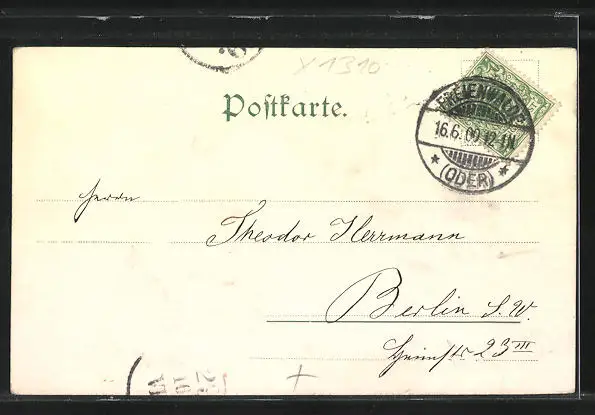 x 1310
Postkarte.
FREIENWALDE
16.6.00.12-1N
* (ODER) *
Herrn
Theodor Herrmann
Berlin S. W.
23 III